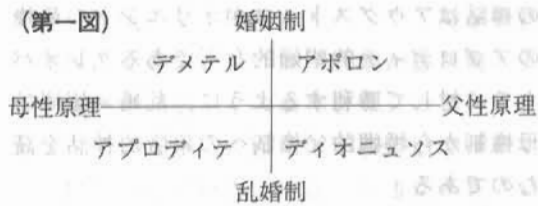 (第一図)
婚姻制
デメテル アポロン
母性原理 父性原理
アプロディテ ディオニュソス
乱婚制